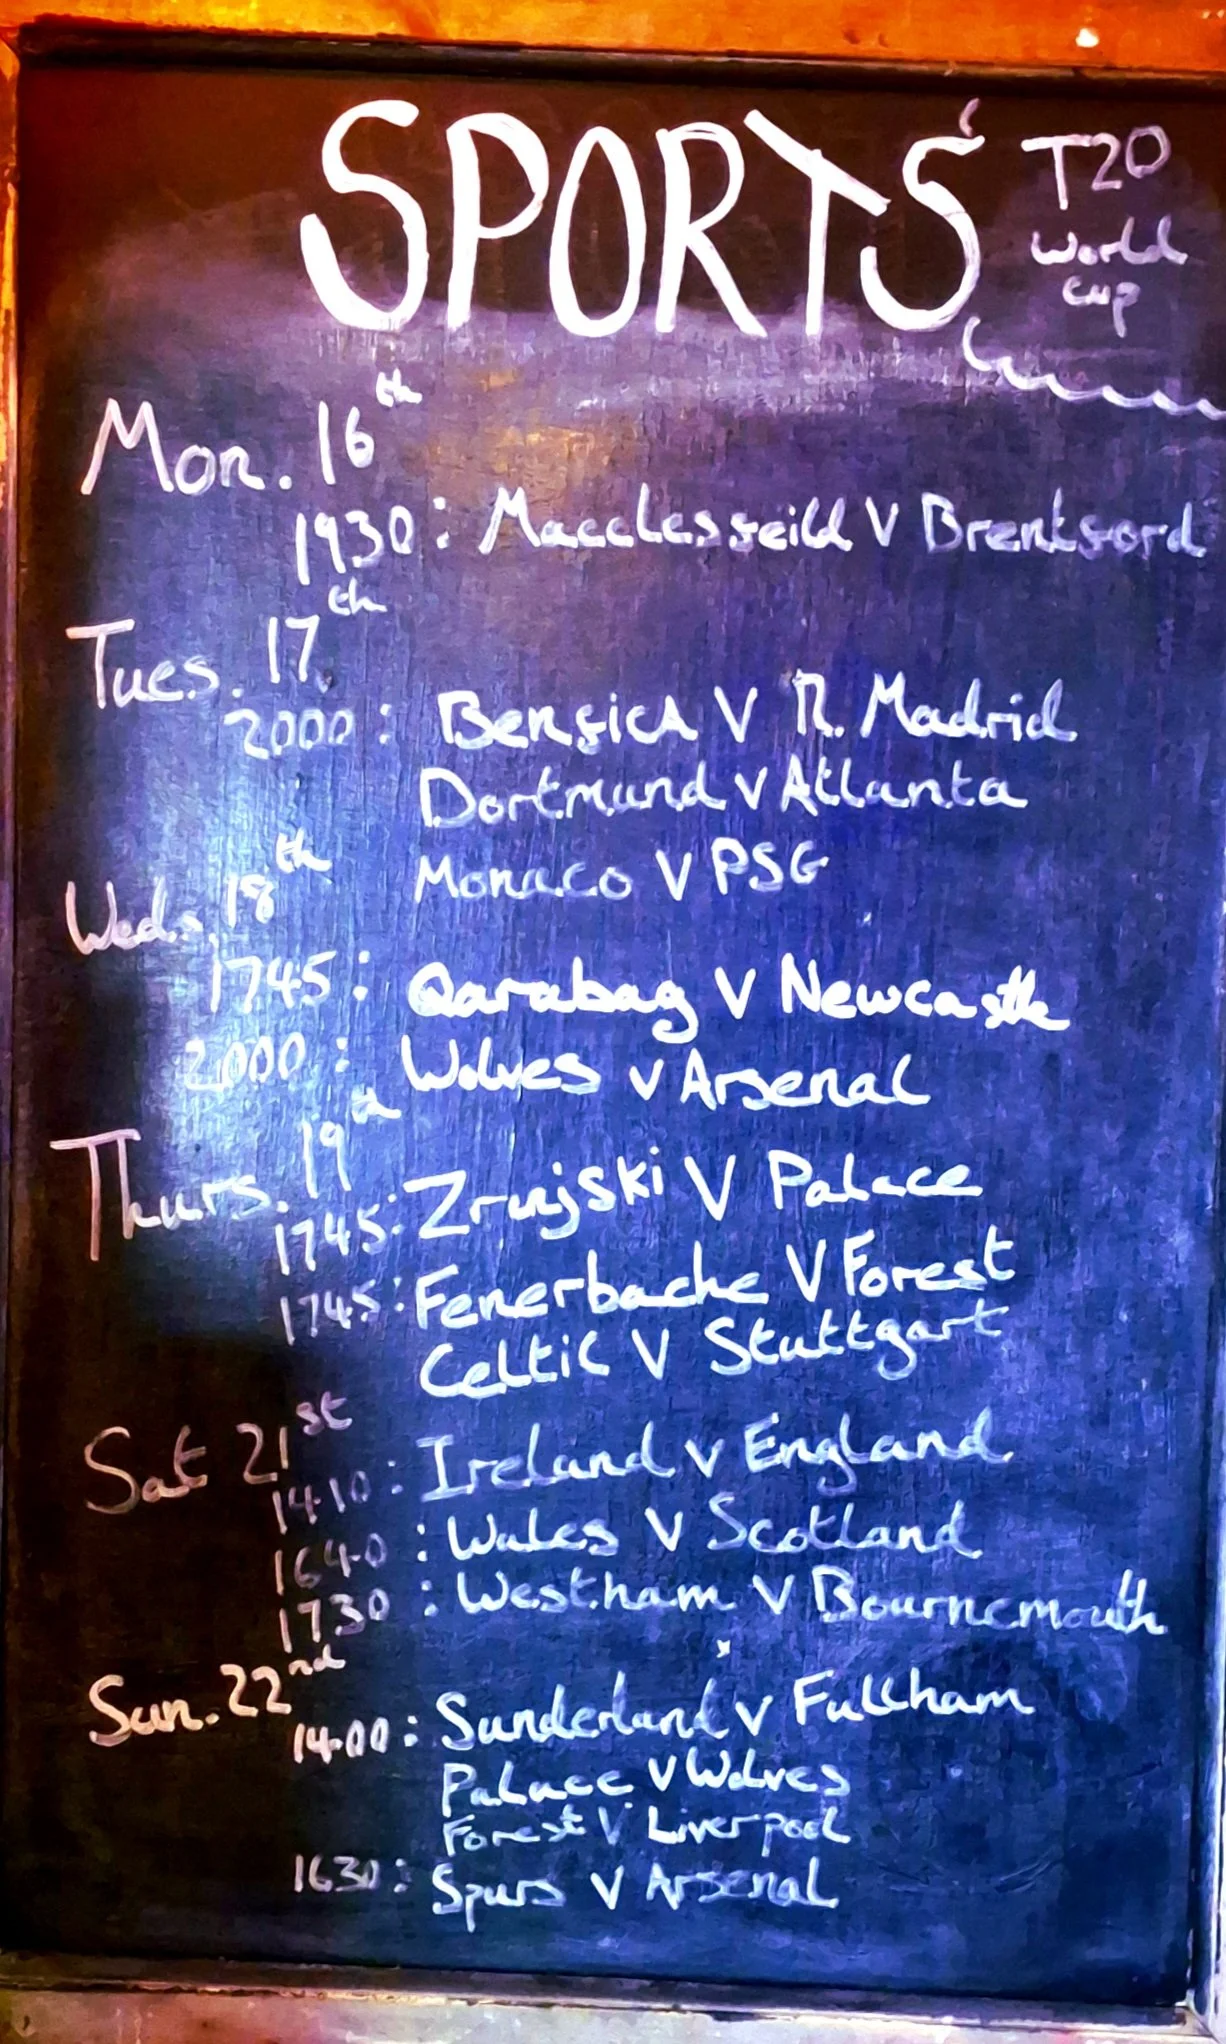 SPORTS
T20
World
Cup
Mon. 16th
1930: Macclesfeild V Brentford
Tues. 17th
2000: Benfica V R. Madrid
Dortmund V Atlanta
Monaco V PSG
Weds. 18th
1745: Qarabag V Newcastle
2000: Wolves V Arsenal
Thurs. 19th
1745: Zrinjski V Palace
1745: Fenerbache V Forest
Celtic V Stuttgart
Sat 21st
1410: Ireland V England
1640: Wales V Scotland
1730: Westham V Bournemouth
Sun. 22nd
1400: Sunderland V Fullham
Palace V Wolves
Forest V Liverpool
1630: Spurs V Arsenal